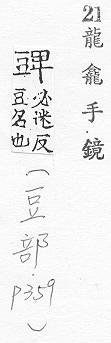 21 龍龕手·鏡
豍 必迷反
豆名也
(豆部·P359)